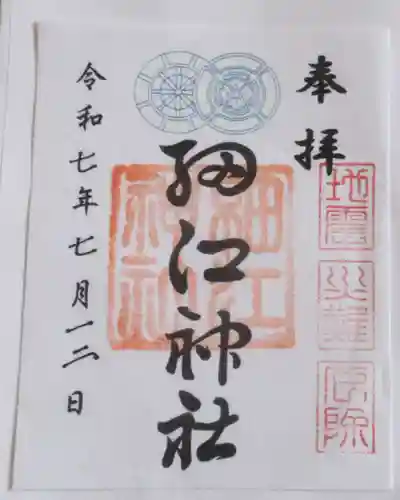 奉拝
地震
災難
除
細江神社
細江
神社
令和七年七月一二日